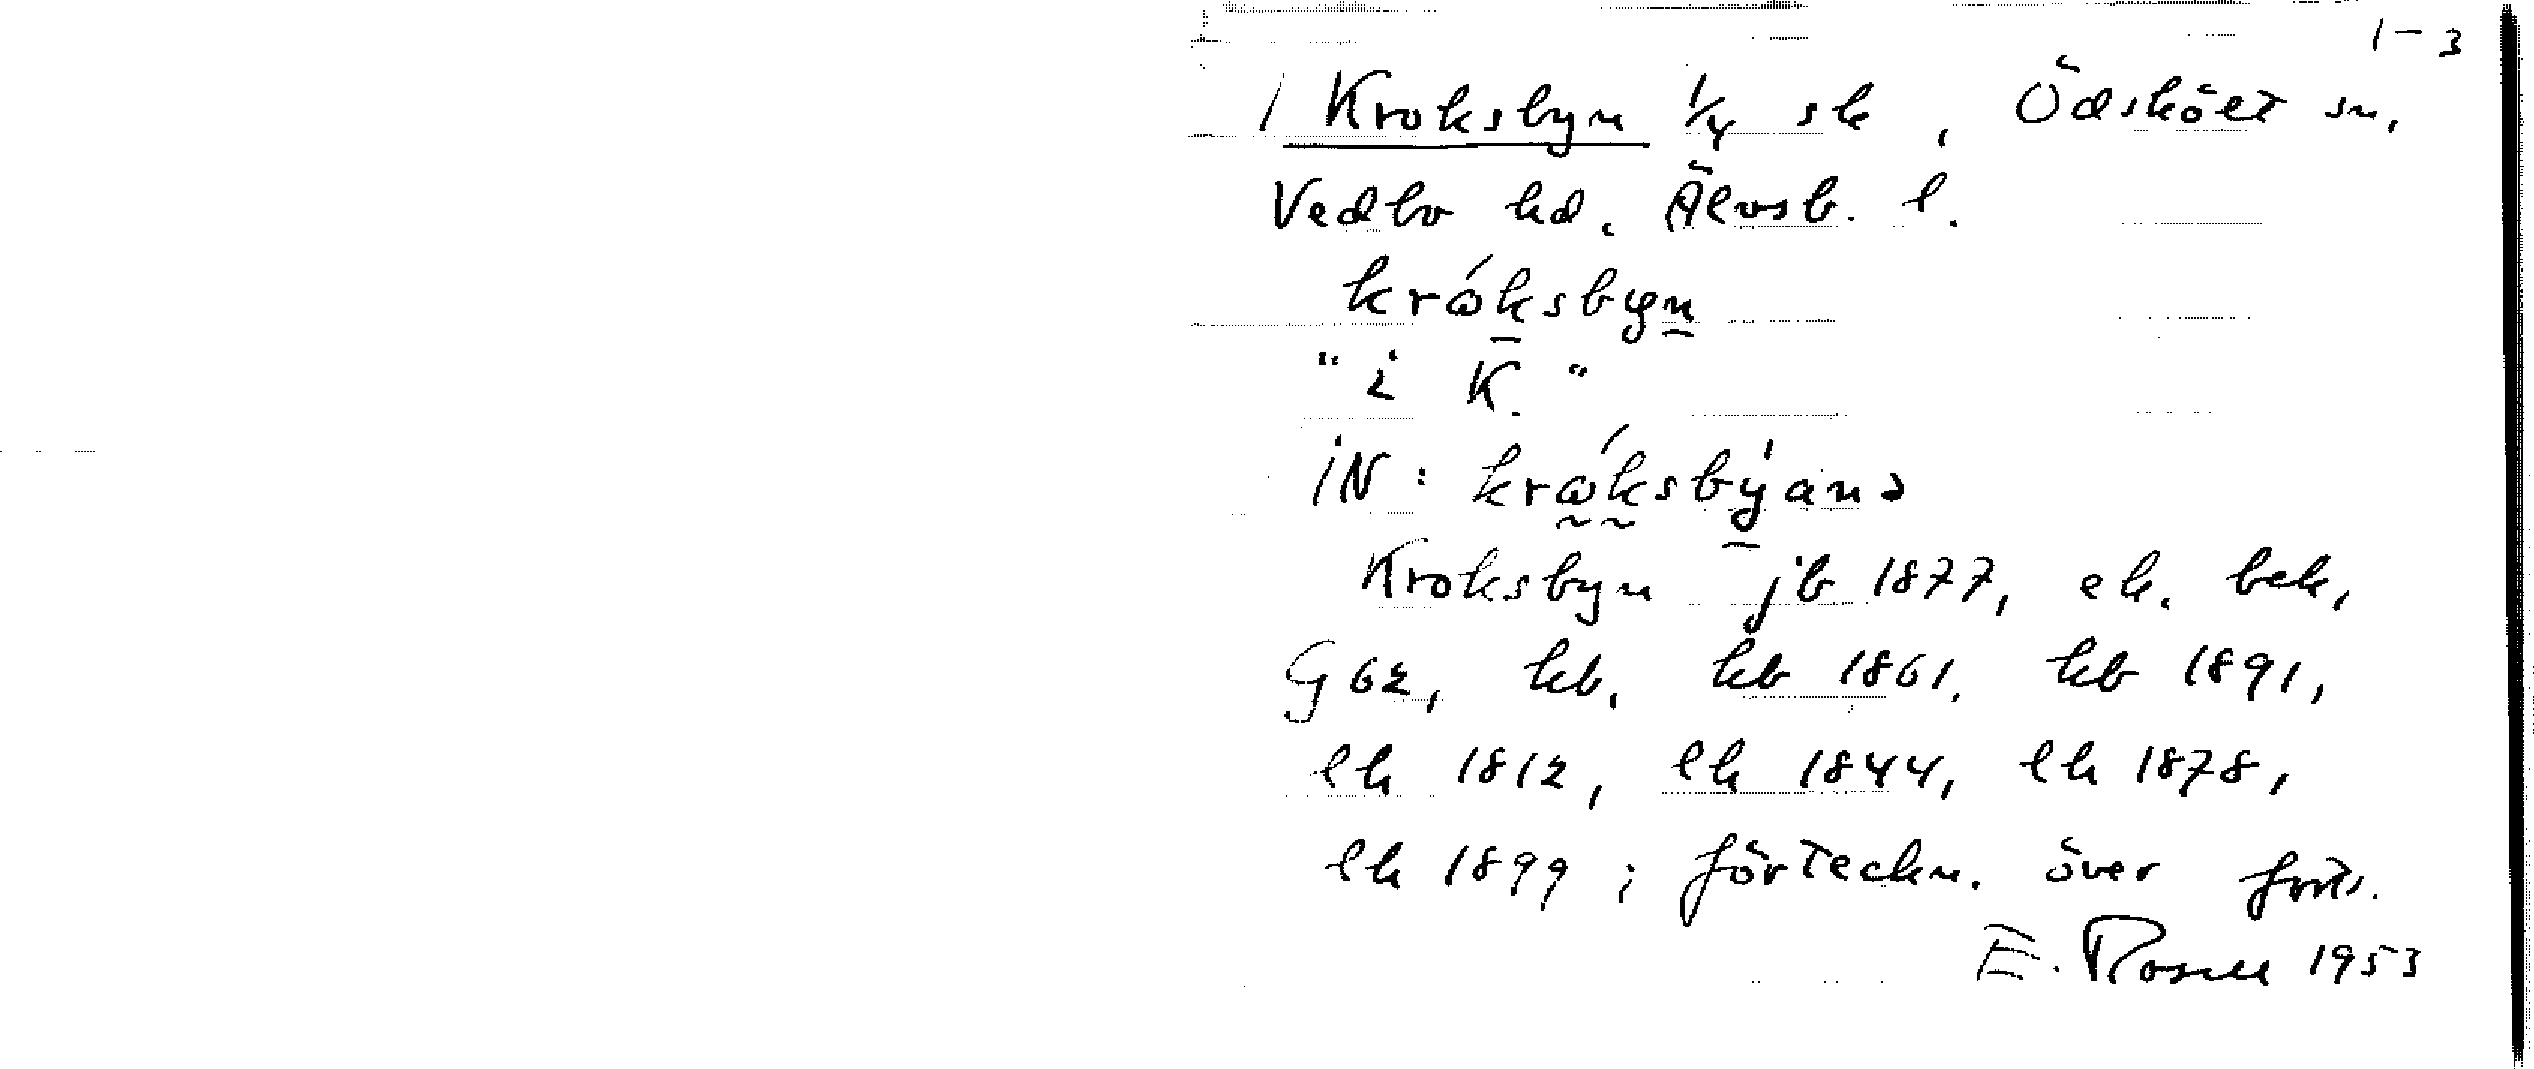 1-3
1 Kroksbyn 1/4 sk, Ödskölt sn,
Vedbo hd. Älvsb. l.
krɷ́ksbyn
"i K."
iN: krɷ́ksby̍anə
Kroksbyn jb 1877, ek. bek,
G 62, hb. kb 1861. kb 1891,
lk 1812, lk 1844, lk 1878,
lk 1899; förteckn. över forts.
E. Rosell 1953